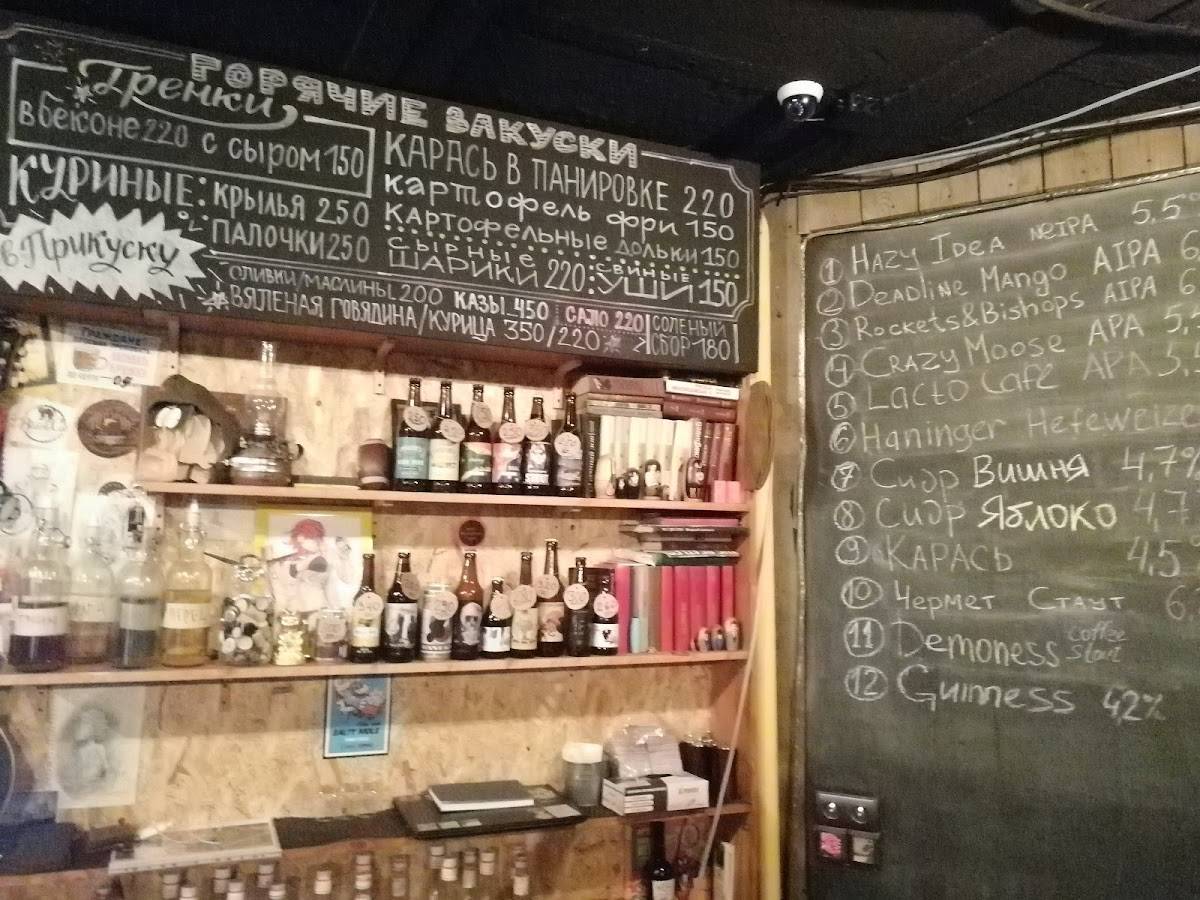 ГОРЯЧИЕ ЗАКУСКИ
Гренки
в беконе 220 с сыром 150
КУРИНЫЕ: КРЫЛЬЯ 250
ПАЛОЧКИ 250
КАРАСЬ В ПАНИРОВКЕ 220
картофель фри 150
Картофельные дольки 150
СЫРНЫЕ ШАРИКИ 220: СВИНЫЕ УШИ 150
в Прикуску
ОЛИВКИ/МАСЛИНЫ 200 КАЗЫ 450
ВЯЛЕНАЯ ГОВЯДИНА/КУРИЦА 350/220
САЛО 220
СОЛЕНЫЙ СБОР 180
SALTY MULE
1 HAZY IDEA NEIPA 5.5
2 Deadline Mango AIPA 6
3 Rockets&Bishops AIPA 6
4 CRAZY Moose APA 5,
5 Lacto Cafe APA 5,
6 Haninger Hefeweize
7 Сидр Вишня 4,7%
8 Сидр Яблоко 4,7
9 КАРАСЬ 4,5
10 Чермет Стаут 6,
11 Demoness Coffee Stout
12 Guinness 4,2%